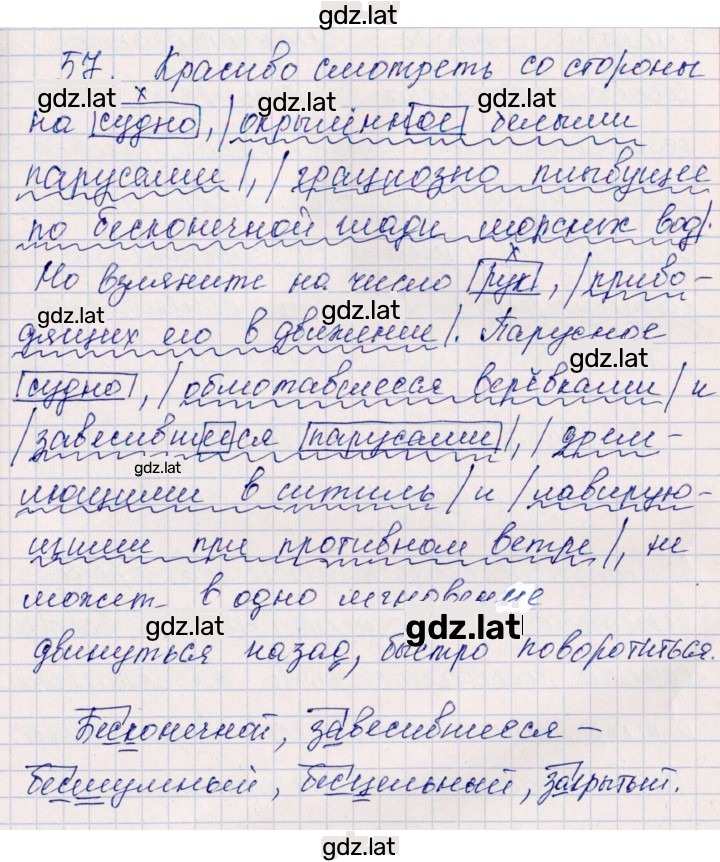 gdz.lat
57. Красиво смотреть со стороны
gdz.lat x gdz.lat gdz.lat
на |судно|, |окрылённое белыми
gdz.lat
парусами|, |грациозно плывущее
по бесконечной глади морских вод|.
x
Но взгляните на число |рук|, |приво-
gdz.lat gdz.lat
дящих его в движении|. Парусное
gdz.lat
|судно|, |обмотавшееся верёвками| и
|завесившееся парусами|, |дрем-
gdz.lat
лющими в
| и |лавирую-
щими при противном ветре|, не
может в одно мгновение
gdz.lat gdz.lat
двинуться назад, быстро поворотиться.
Бесконечной, завесившееся –
бесшумный, бесцельный, закрытый.
gdz.lat